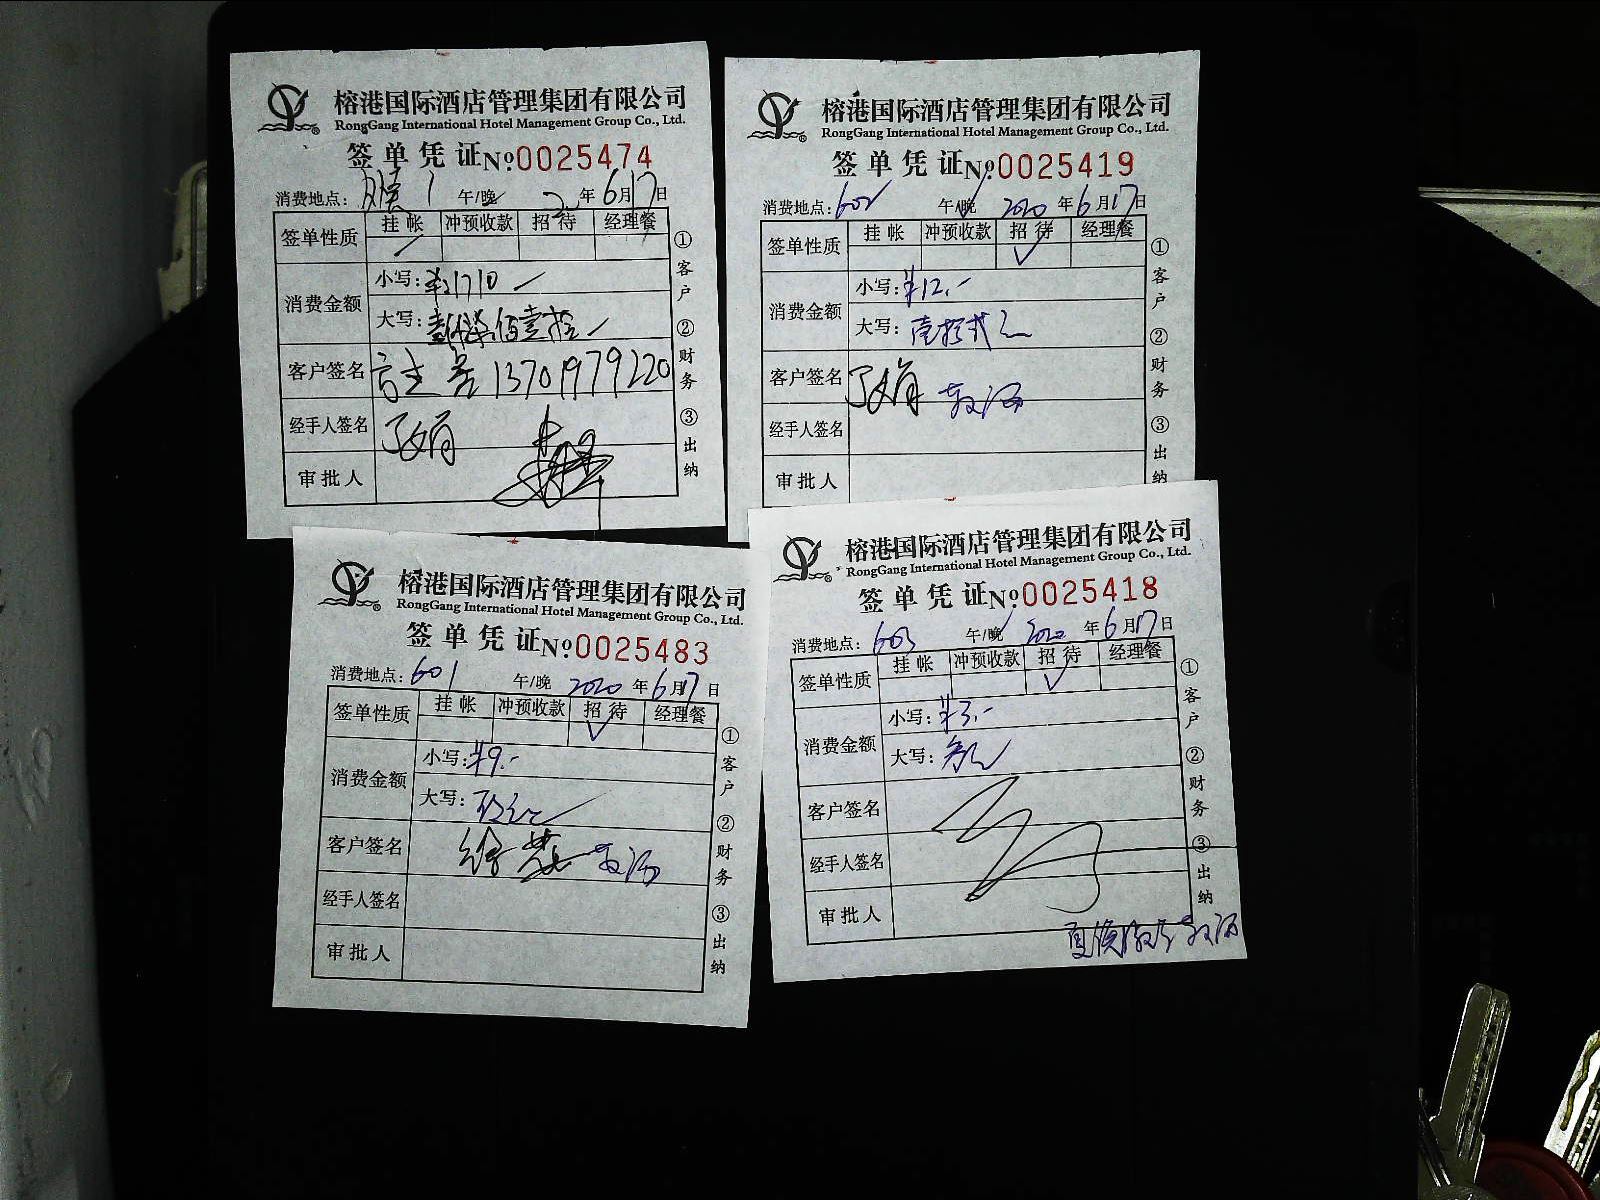 榕港国际酒店管理集团有限公司
RongGang International Hotel Management Group Co., Ltd.
签单凭证 №0025474
消费地点: 午/晚 年6月17日
签单性质 挂帐 冲预收款 招待 经理餐
消费金额 小写: 1710
大写: 佰壹拾
客户签名 13701979220
经手人签名
审批人
①客户 ②财务 ③出纳
榕港国际酒店管理集团有限公司
RongGang International Hotel Management Group Co., Ltd.
签单凭证 №0025419
消费地点: 602 午/晚 2020年6月17日
签单性质 挂帐 冲预收款 招待 经理餐
消费金额 小写: ¥12.-
大写: 壹拾贰元
客户签名
经手人签名
审批人
①客户 ②财务 ③出纳
榕港国际酒店管理集团有限公司
RongGang International Hotel Management Group Co., Ltd.
签单凭证 №0025483
消费地点: 601 午/晚 2020年6月17日
签单性质 挂帐 冲预收款 招待 经理餐
消费金额 小写: ¥9.-
大写:
客户签名
经手人签名
审批人
①客户 ②财务 ③出纳
榕港国际酒店管理集团有限公司
RongGang International Hotel Management Group Co., Ltd.
签单凭证 №0025418
消费地点: 603 午/晚 2020年6月17日
签单性质 挂帐 冲预收款 招待 经理餐
消费金额 小写: ¥3.-
大写: 叁元
客户签名
经手人签名
审批人
①客户 ②财务 ③出纳